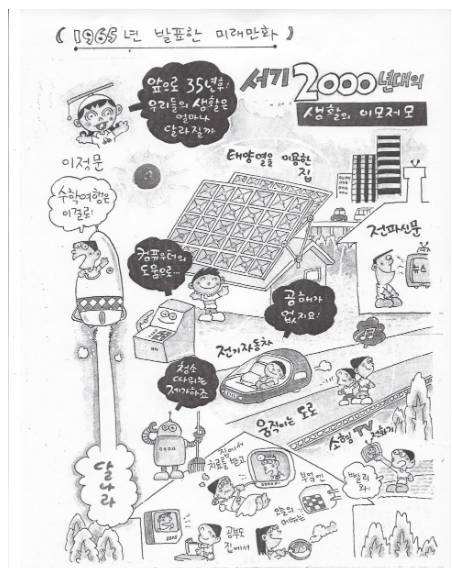 ( 1965년 발표한 미래만화 )
앞으로 35년후!
우리들의 생활은
얼마나
달라질까
서기 2000년대의
생활의 이모저모
이정문
태양열을 이용한
집
수학여행은
이걸로!
전파신문
뉴스
컴퓨터의
도움으로...
공해가
없지요!
전기자동차
청소
따위는
제가하죠
움직이는 도로
소형 TV 전화기
달나라
집에서
치료를 받고
부엌엔
오늘의
메뉴는
빨리와
공부도
집에서